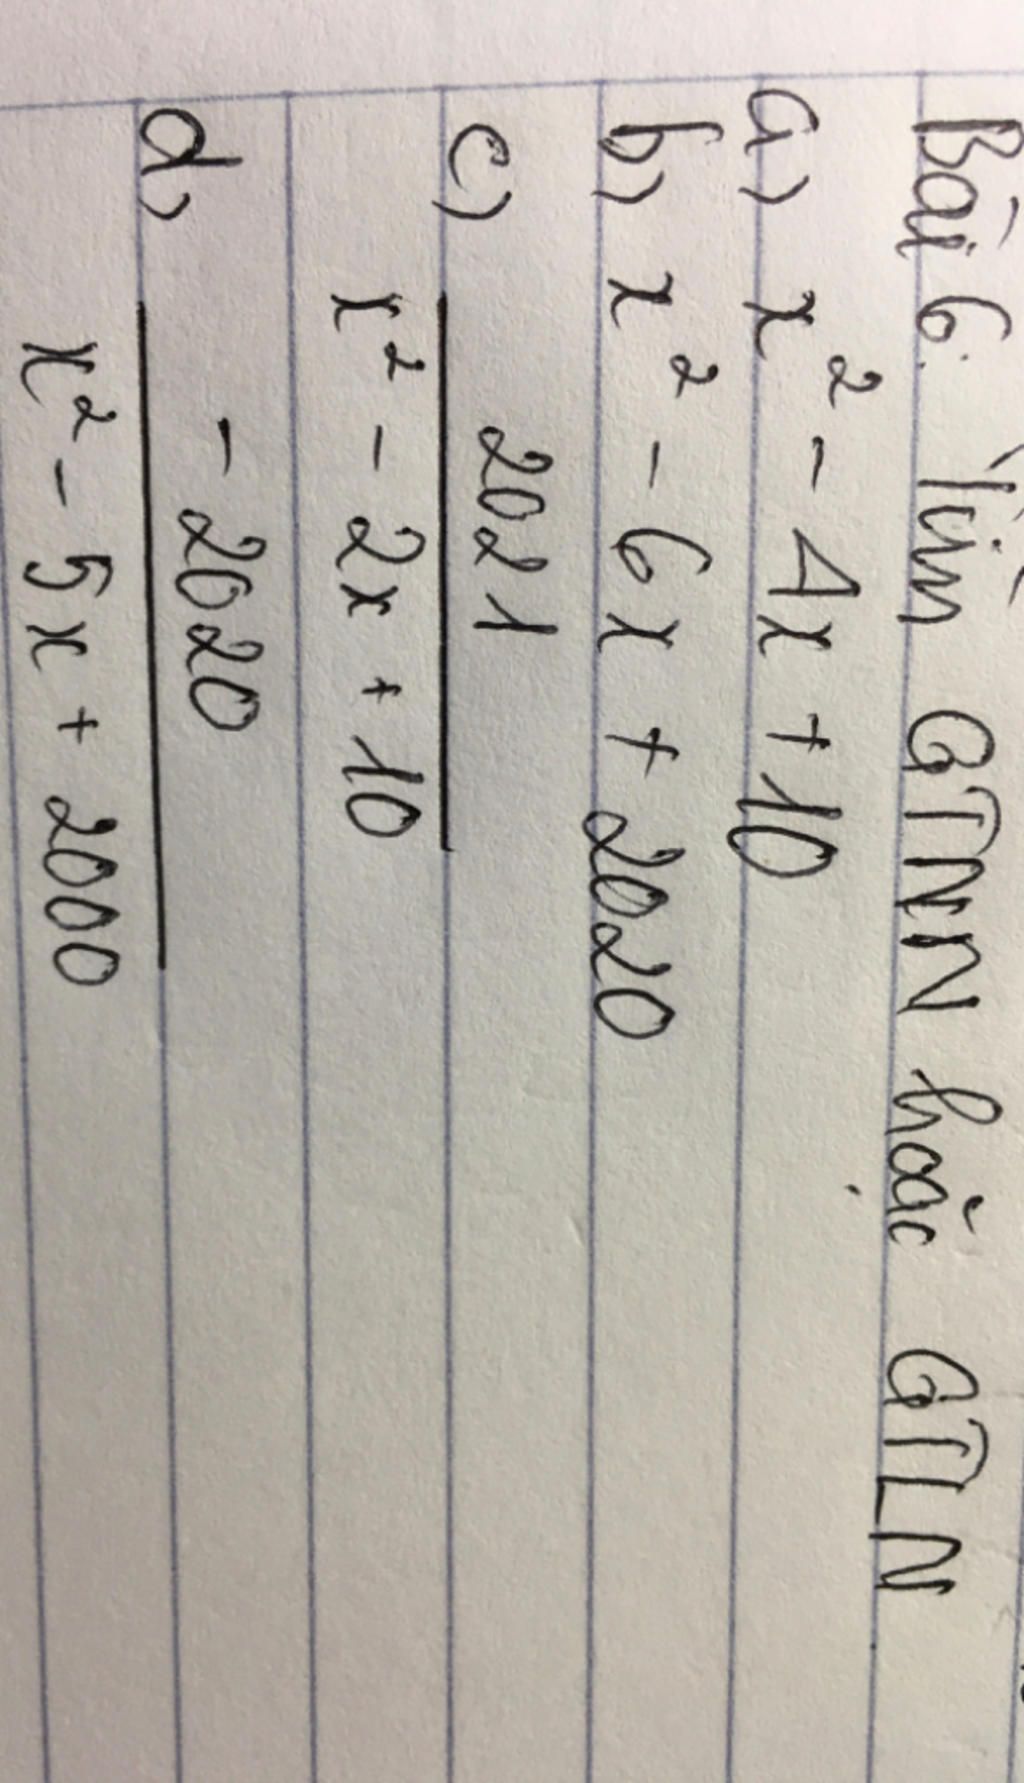 Bài 6. Tìm GTNN hoặc GTLN
a) x² - 4x + 10
b) x² - 6x + 2020
c) 2021
x² - 2x + 10
d) - 2020
x² - 5x + 2000